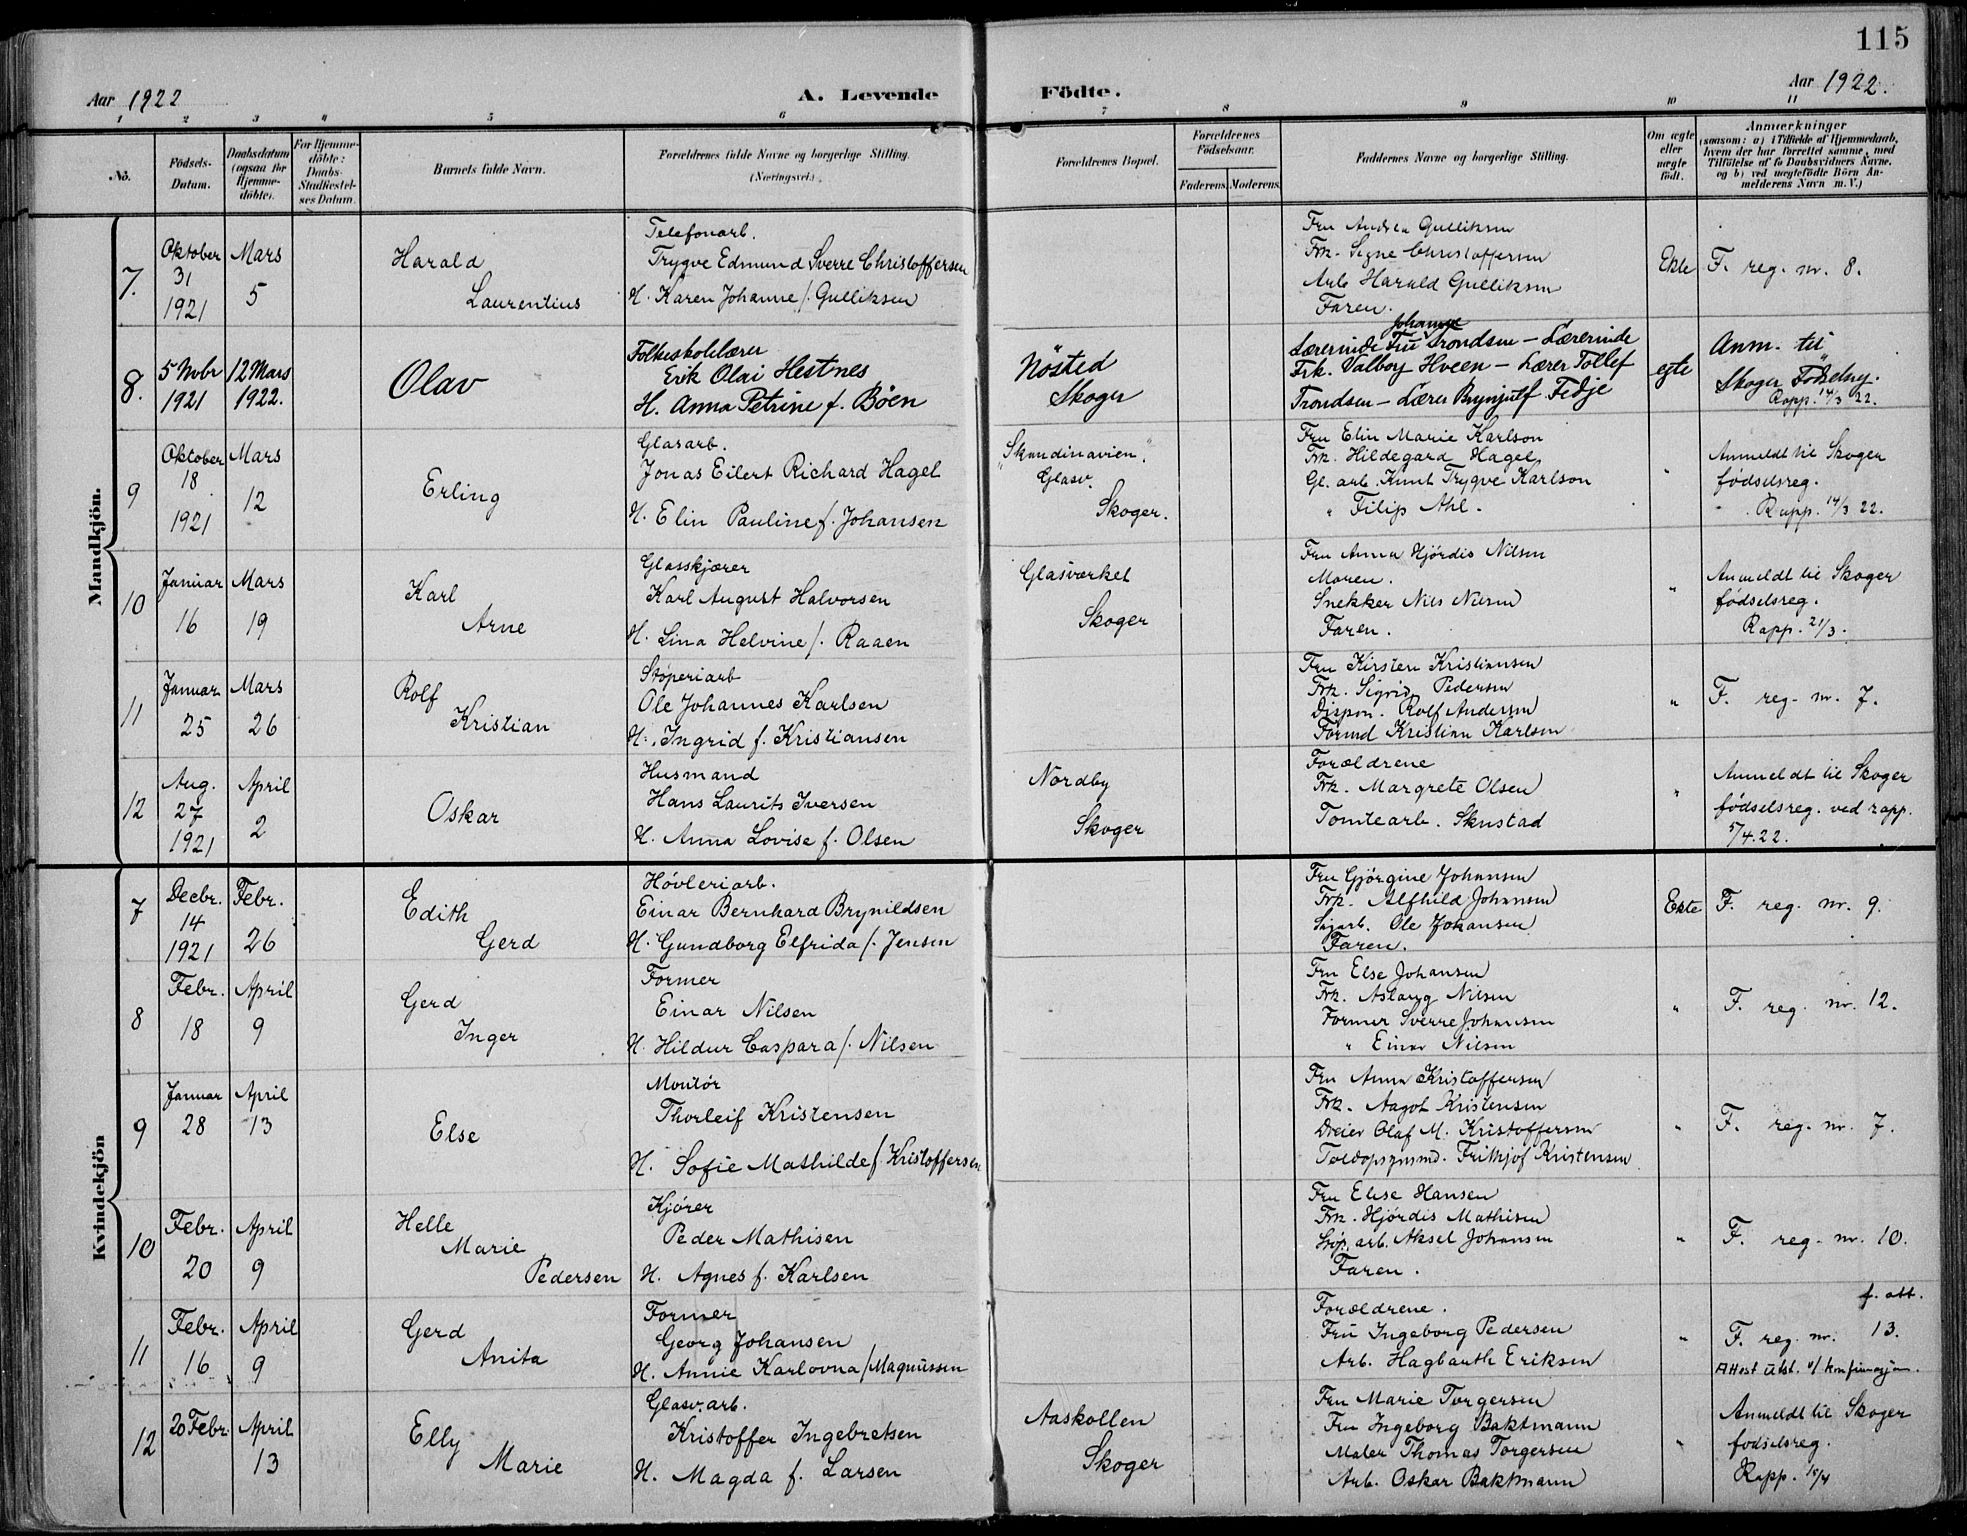 115
Aar 1922
A. Levende
Födte.
Aar 1922.
1 2 3 4 5 6 7 8 9 10 11
No.
Födsels-Datum.
Daabsdatum (ogsaa for Hjemme-döbte).
For Hjemme-döbte: Daabs-Stadfæstel-ses Datum.
Barnets fulde Navn.
Forældrenes fulde Navne og borgerlige Stilling. (Næringsvei.)
Forældrenes Bopæl.
Forældrenes Födselsaar.
Faderens. Moderens.
Faddernes Navne og borgerlige Stilling.
Om ægte eller uægte födt.
Anmærkninger
(saasom: a) i Tilfælde af Hjemmedaab,
hvem der har forrettet samme, med
Tilföielse af to Daabsvidners Navne,
og b) ved uægtefödte Börn An-
melderens Navn m. V.)
Mandkjön.
7. Oktober 31 1921
Mars 5
Harald
Laurentius
Telefonarb.
Trygve Edmund Sverre Christoffersen
H. Karen Johanne f. Gulliksen
Fru Andrea Gulliksen
Frk. Signe Christoffersen
Arb Harald Gulliksen
Faren.
Ekte
F. reg. nr. 8.
8. 5 Nvbr 1921
12 Mars 1922.
Olav
Folkeskolelærer
Erik Olai Hestnes
H. Anna Petrine f. Böen
Nösted
Skoger
Johanne
Lærerinde Fru Trondsen – Lærerinde
Frk. Valborg Hveen – Lærer Tollef
Trondsen – Lærer Brynjulf Fedje
egte
Anm. til
Skoger Födselreg.
Rapp. 14/3 22.
9 Oktober 18 1921
Mars 12
Erling
Glasarb.
Jonas Eilert Richard Hagel
H. Elin Pauline f. Johansen
"Skandinavien"
Glasv.
Skoger.
Fru Elin Marie Karlson
Frk. Hildegard Hagel
Gl. arb. Knut Trygve Karlson
" Filip Ahl.
"
Anmeldt til Skoger
fødselsreg.
Rapp. 14/3 22.
10 Januar 16
Mars 19
Karl
Arne
Glasskjærer
Karl August Halvorsen
H. Lina Helvine f. Raaen
Glasværket
Skoger
Fru Anna Hjørdis Nilsen
Moren.
Snekker Nils Nilsen
Faren.
"
Anmeldt til Skoger
fødselsreg.
Rapp. 21/3.
11 Januar 25
Mars 26
Rolf
Kristian
Støperiarb
Ole Johannes Karlsen
H. Ingrid f. Kristiansen
Fru Kirsten Kristiansen
Frk. Sigrid Pedersen
Dispon. Rolf Andersen
Formd Kristian Karlsen
"
F. reg. nr. 7.
12 Aug. 27 1921
April 2
Oskar
Husmand
Hans Laurits Iversen
H. Anna Lovise f. Olsen
Nordby
Skoger
Forældrene
Frk. Margrete Olsen
Tomtearb. Skustad
"
Anmeldt til Skoger
fødselsreg. ved rapp.
5/4.22.
Kvindekjön
7 Decbr. 14 1921
Febr. 26
Edith
Gerd
Høvleriarb.
Einar Bernhard Brynildsen
H. Gundborg Elfrida f. Jensen
Fru Gjørgine Johansen
Frk. Alfhild Johansen
Ole Johansen
Faren.
Ekte
F. reg. nr. 9.
8 Febr. 18
April 9
Gerd
Inger
Former
Einar Nilsen
H. Hildur Caspara f. Nilsen
Fru Else Johansen
Frk. Aslaug Nilsen
Former Sverre Johansen
" Einar Nilsen
"
F. reg. nr. 12.
9 Januar 28
April 13
Else
Montör
Thorleif Kristensen
H. Sofie Mathilde f. Kristoffersen
Fru Anna Kristoffersen
Frk. Aagot Kristensen
Dreier Olaf M. Kristoffersen
Toldopsynsmd. Frithjof Kristensen
"
F. reg. nr. 7.
10 Febr. 20
April 9
Helle
Marie
Pedersen
Kjører
Peder Mathisen
H. Agnes f. Karlsen
Fru Elise Hansen
Frk. Hjørdis Mathisen
Støp. arb. Aksel Johansen
Faren.
"
F. reg. nr. 10.
11 Febr. 16
April 9
Gerd
Anita
Former
Georg Johansen
H. Annie Karlovna f. Magnussen
Forældrene.
Fru Ingeborg Pedersen
Arb. Hagbarth Eriksen
"
f. att.
F. reg. nr. 13.
Attest utst. v/ konfirmasjon.
12 20 Febr
April 13
Elly
Marie
Glasv. arb.
Kristoffer Ingebretsen
H. Magda f. Larsen
Aaskollen
Skoger
Fru Marie Torgersen
Fru Ingeborg Baktmann
Maler Thomas Torgersen
Arb. Oskar Baktmann
"
Anmeldt til Skoger
fødselsreg.
Rapp. 15/4